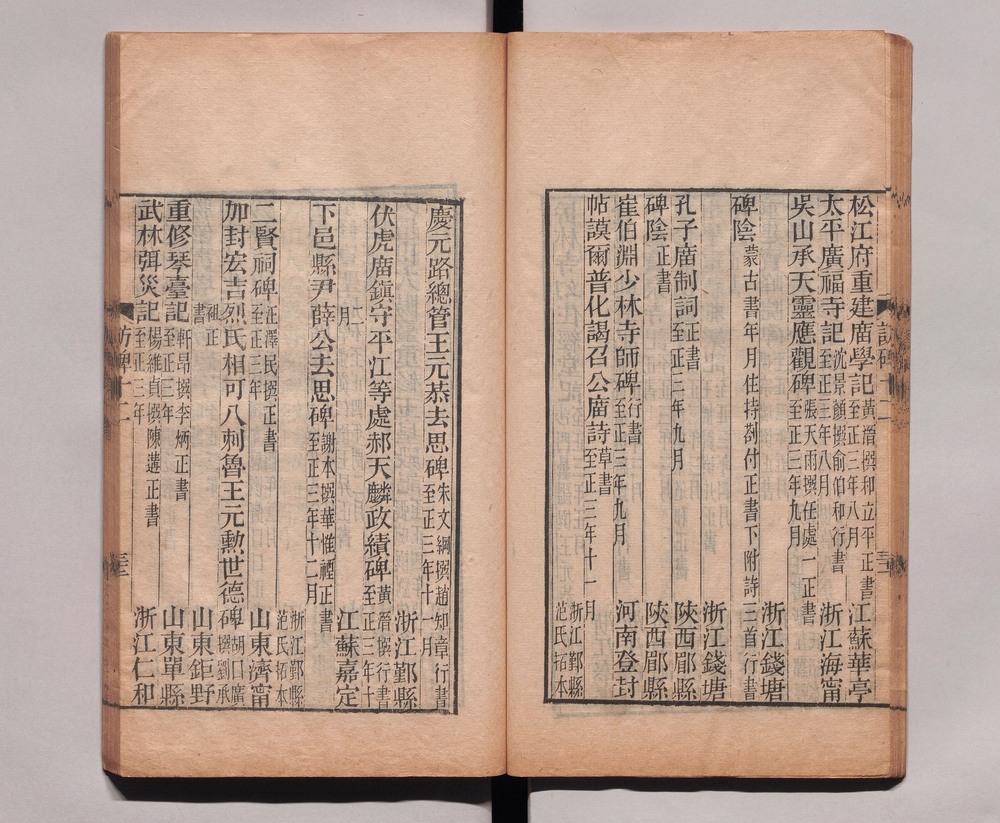 松江府重建廣學記 黃溍撰和立平正書 至正三年八月 江蘇華亭
太平廣福寺記 沈景顏撰俞伯和行書 至正三年八月 浙江海甯
吳山承天靈應觀碑 張天雨撰任處一正書 至正三年九月
浙江錢塘
碑陰 蒙古書年月住持劄付正書下附詩三首行書
浙江錢塘
孔子廣制詞 正書 至正三年九月 陝西郿縣
碑陰 正書 陝西郿縣
崔伯淵少林寺師碑 行書 至正三年九月 河南登封
帖謨爾普化謁召公廣詩 草書 至正三年十一月
浙江鄞縣 范氏拓本
慶元路總管王元恭去思碑 朱文綱撰趙知章行書 至正三年十一月
浙江鄞縣
伏虎廟鎮守平江等處郝天麟政績碑 黃溍撰行書 至正三年十二月
江蘇嘉定
下邑縣尹薛公去思碑 謝本撰華惟禋正書 至正三年十二月
浙江鄞縣 范氏拓本
二賢祠碑 汪澤民撰正書 至正三年 山東濟甯
加封宏吉烈氏相可八剌魯王元勳世德碑 胡口廣撰劉承祖正書
山東鉅野
重修琴臺記 軒昂撰李炳正書 至正三年 山東單縣
武林弭災記 楊維貞撰陳遘正書 至正三年 浙江仁和
訪碑十二